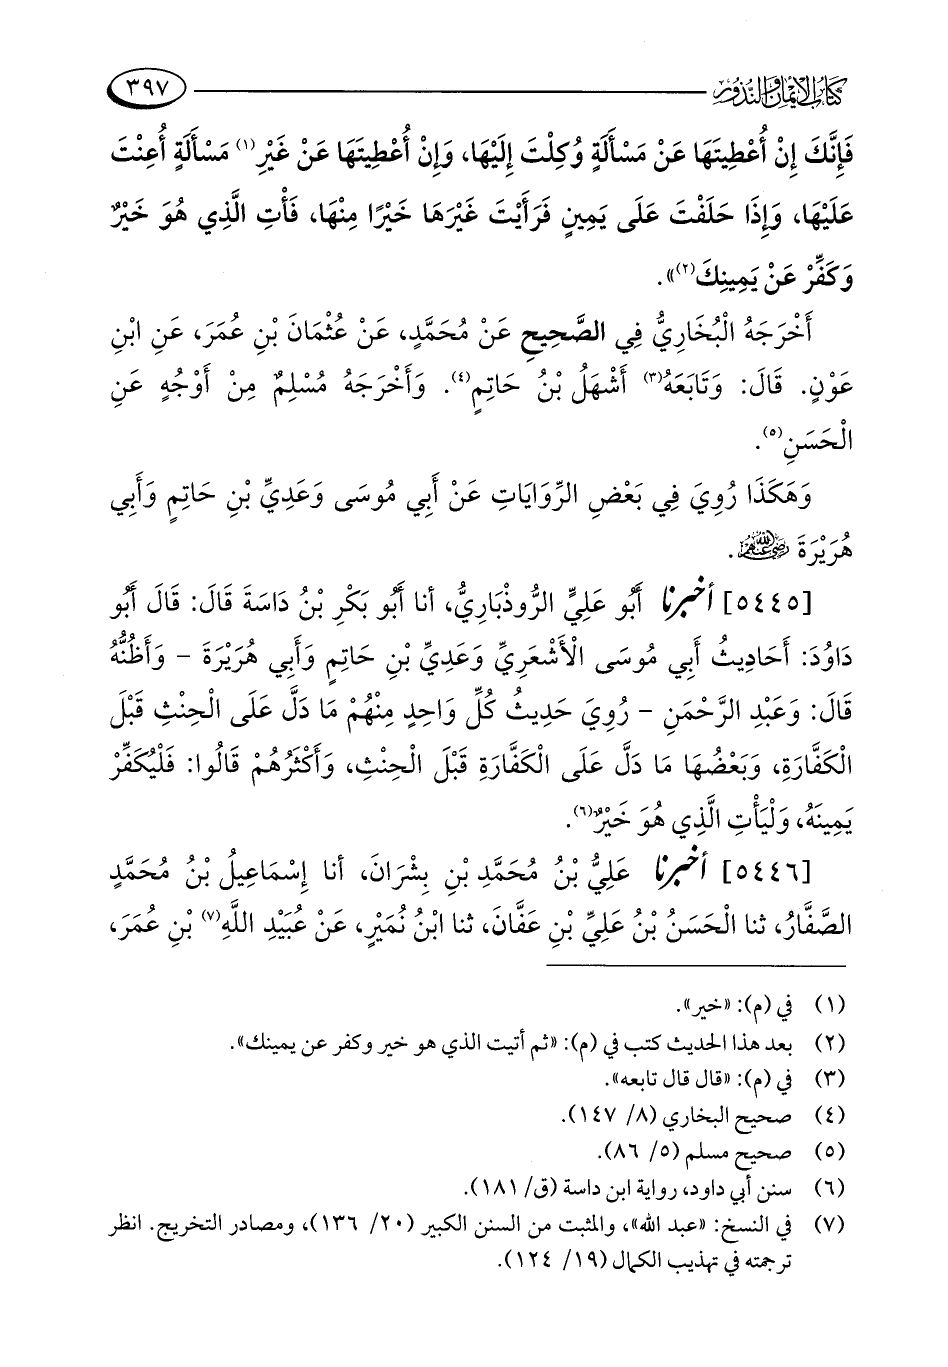 كتاب الأيمان والنذور ٣٩٧
فَإِنَّكَ إِنْ أُعْطِيتَهَا عَنْ مَسْأَلَةٍ وُكِلْتَ إِلَيْهَا، وَإِنْ أُعْطِيتَهَا عَنْ غَيْرِ(١) مَسْأَلَةٍ أُعِنْتَ
عَلَيْهَا، وَإِذَا حَلَفْتَ عَلَى يَمِينٍ فَرَأَيْتَ غَيْرَهَا خَيْرًا مِنْهَا، فَأْتِ الَّذِي هُوَ خَيْرٌ
وَكَفِّرْ عَنْ يَمِينِكَ(٢)».
أَخْرَجَهُ الْبُخَارِيُّ فِي الصَّحِيحِ عَنْ مُحَمَّدٍ، عَنْ عُثْمَانَ بْنِ عُمَرَ، عَنِ ابْنِ
عَوْنٍ. قَالَ: وَتَابَعَهُ(٣) أَشْهَلُ بْنُ حَاتِمٍ(٤). وَأَخْرَجَهُ مُسْلِمٌ مِنْ أَوْجُهٍ عَنِ
الْحَسَنِ(٥).
وَهَكَذَا رُوِيَ فِي بَعْضِ الرِّوَايَاتِ عَنْ أَبِي مُوسَى وَعَدِيِّ بْنِ حَاتِمٍ وَأَبِي
هُرَيْرَةَ رضي الله عنهم.
[٥٤٤٥] أخبرنا أَبُو عَلِيٍّ الرُّوذْبَارِيُّ، أنا أَبُو بَكْرِ بْنُ دَاسَةَ قَالَ: قَالَ أَبُو
دَاوُدَ: أَحَادِيثُ أَبِي مُوسَى الْأَشْعَرِيِّ وَعَدِيِّ بْنِ حَاتِمٍ وَأَبِي هُرَيْرَةَ – وَأَظُنُّهُ
قَالَ: وَعَبْدِ الرَّحْمَنِ – رُوِيَ حَدِيثُ كُلِّ وَاحِدٍ مِنْهُمْ مَا دَلَّ عَلَى الْحِنْثِ قَبْلَ
الْكَفَّارَةِ، وَبَعْضُهَا مَا دَلَّ عَلَى الْكَفَّارَةِ قَبْلَ الْحِنْثِ، وَأَكْثَرُهُمْ قَالُوا: فَلْيُكَفِّرْ
يَمِينَهُ، وَلْيَأْتِ الَّذِي هُوَ خَيْرٌ(٦).
[٥٤٤٦] أخبرنا عَلِيُّ بْنُ مُحَمَّدِ بْنِ بِشْرَانَ، أنا إِسْمَاعِيلُ بْنُ مُحَمَّدٍ
الصَّفَّارُ، ثنا الْحَسَنُ بْنُ عَلِيِّ بْنِ عَفَّانَ، ثنا ابْنُ نُمَيْرٍ، عَنْ عُبَيْدِ اللَّهِ(٧) بْنِ عُمَرَ،
(١) في (م): «خير».
(٢) بعد هذا الحديث كتب في (م): «ثم أتيت الذي هو خير وكفر عن يمينك».
(٣) في (م): «قال قال تابعه».
(٤) صحيح البخاري (٨/ ١٤٧).
(٥) صحيح مسلم (٥/ ٨٦).
(٦) سنن أبي داود، رواية ابن داسة (ق/ ١٨١).
(٧) في النسخ: «عبد الله»، والمثبت من السنن الكبير (٢٠/ ١٣٦)، ومصادر التخريج. انظر
ترجمته في تهذيب الكمال (١٩/ ١٢٤).